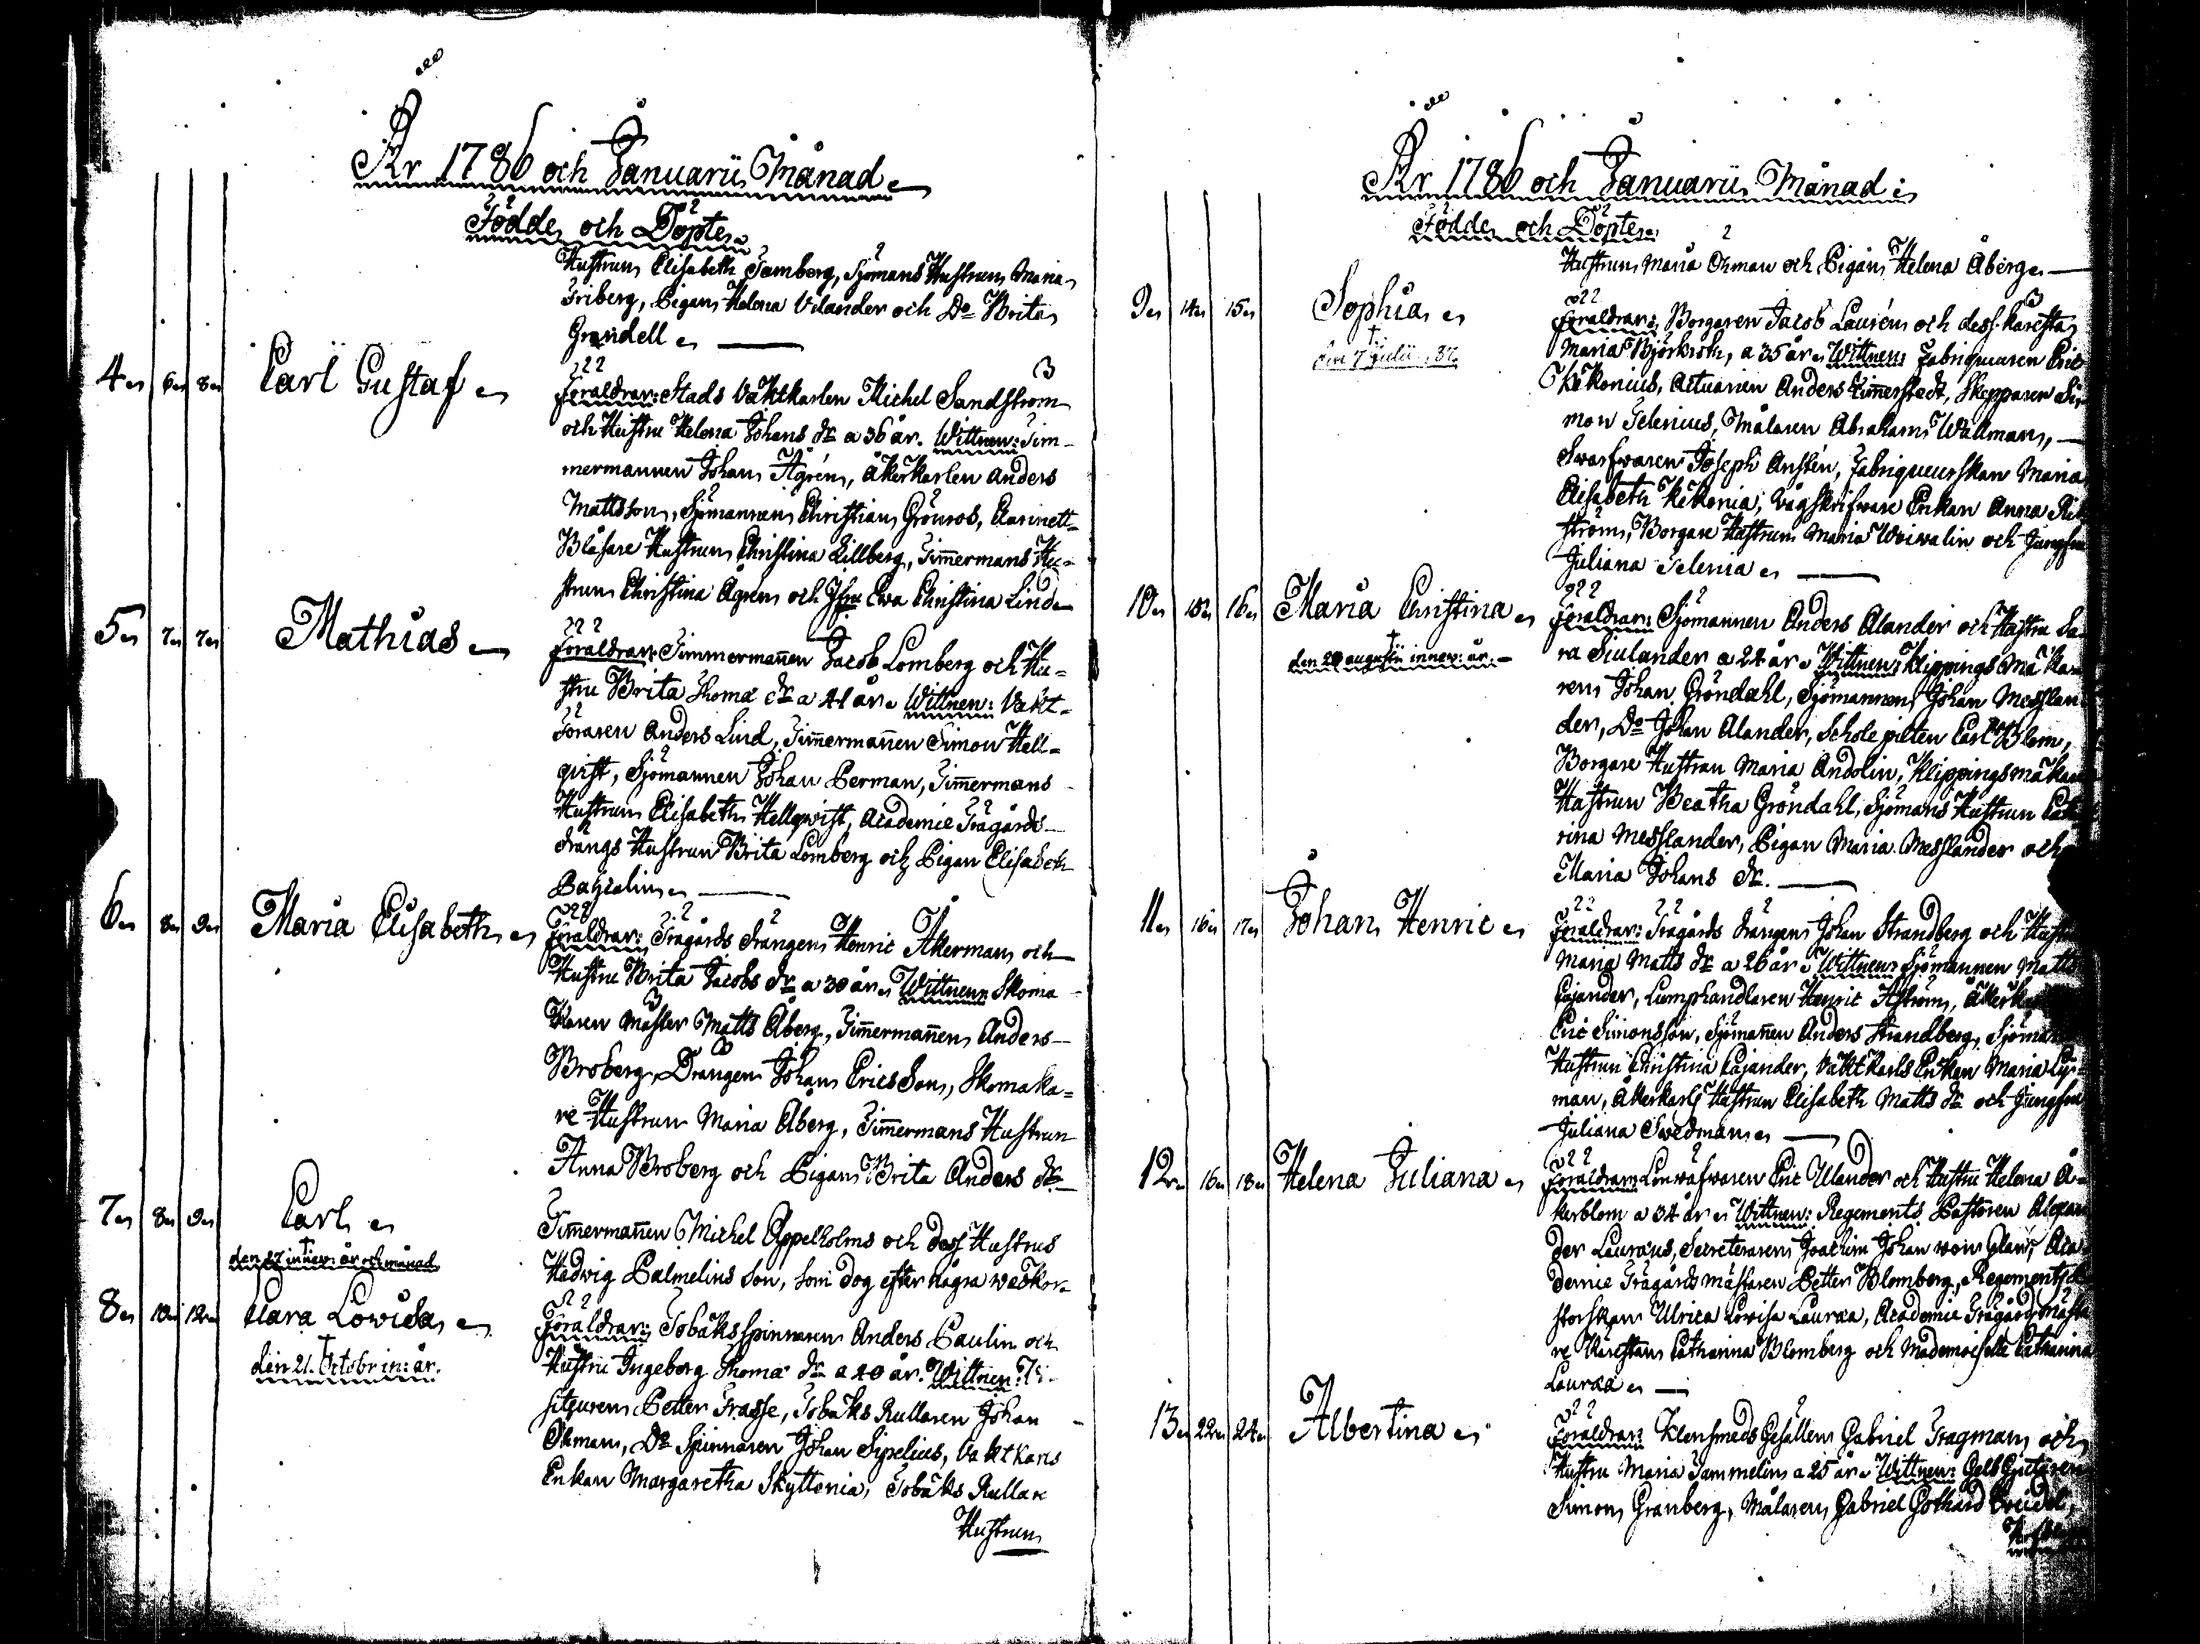 År 1786 och Januarii Månad
Födde och Döpte
Hustrun Elisabeth Jamberg, Sjömans Hustrun Maria
Friberg, Pigan Helena Velander och Do Brita
Grandell
4 6 8 Carl Gustaf
Föräldrar: Stads Vaktkarlen Michel Sandström
och Hustru Helena Johans dr a 36 år. Wittnen: Tim-
mermannen Johan Ågrén, åkerkarlen Anders
Mattsson, Sjömannen Christian Grönros, Clarinett-
Blåsare Hustrun Christina Lillberg, Timmermans Hu-
strun Christina Ågren och Jfru Ewa Christina Lind
5 7 7 Mathias
Föräldrar: Timmermannen Jacob Lomberg och Hu-
stru Brita Thomæ dr a 41 år Wittnen: Vakt-
Föraren Anders Lind, Timmermannen Simon Hell-
qvist, Sjömannen Johan Berman, Timmermans
Hustrun Elisabeth Hellqwist, Academie Trägårds-
drängs Hustrun Brita Lomberg och Pigan Elisabeth
6 8 9 Maria Elisabeth
Föräldrar: Trägårds drängen Henric Åkerman och
Hustru Brita Jacobs dr a 30 år Wittnen Skoma
karen Mäster Matts Åberg, Timmermannen Anders
Broberg, Drängen Johan Ericsson, Skomaka-
re Hustrun Maria Åberg, Timmermans Hustrun
Anna Broberg och Pigan Brita Anders dr
7 8 9 Carl
den 27 innev: år och månad
Timmermannen Michel Appelholms och dess Hustrus
Hedvig Palmelins son, som dog efter några weckor
8 10 12 Clara Lovisa
den 21. Octobr in: år.
Föräldrar: Tobaksspinnaren Anders Paulin och
Hustru Ingeborg Thomæ dr a 40 år. Wittnen: Vi-
siteuren Petter Frasse, Tobaks Rullaren Johan
Öhman, Do Spinnaren Johan Sipelius, Vaktkarls
Enkan Margaretha Skyttenia, Tobaks Rullare
Hustrun
År 1786 och Januarii Månad
Födde och Döpte
Hustrun Maria Öhman och Pigan Helena Åberg
9 14 15 Sophia
den 7 Julii 87
Föräldrar: Borgaren Jacob Laurén och dess Käresta
Maria Björkvist, a 35 år Wittnen: Fabriqueuren Eric
Kekonius, Actuarien Anders Timmerstedt, Skepparen Si-
mon Selenius, Målaren Abraham Wallman,
Swarfwaren Joseph Anstén, Fabriqueurskan Maria
Elisabeth Kekonia, Vågskrifware Enkan Anna
ström, Borgare Hustrun Maria Woivalin och Jungfru
Juliana Selenia
10 15 16 Maria Christina
den 20 augustii innev: år.
Föräldrar: Sjömannen Anders Alander och Hustru Sa
ra Siulander a 24 år Wittnen: Klippings Måka-
ren Johan Gröndahl, Sjömannen Johan Messlan
der, Do Johan Alander, Schole pilten Carl Blom,
Borgare Hustrun Maria Andolin, Klippingsmåkare
Hustrun Beatha Gröndahl, Sjömans Hustrun Cath
rina Messlander, Pigan Maria Messlander och
Maria Johans dr.
11 16 17 Johan Henric
Föräldrar: Trägårds drängen Johan Strandberg och Hustru
Maria Matts dr a 26 år Wittnen: Sjömannen Matts
Cajander, Lumphandlaren Henric Åström, Åkerka
Eric Simonsson, Sjömannen Anders Strandberg, Sjöma
Hustrun Christina Cajander, Vaktkarls Enkan Maria
man, Åkerkarls Hustrun Elisabeth Matts dr och Jungfru
Juliana Swedman
12 16 18 Helena Juliana
Föräldrar: Linwäfwaren Eric Ulander och Hustru Helena Å-
kerblom a 34 år Wittnen: Regements Pastoren Alexan
der Lauræus, Secreteraren Joachim Johan von Glan, Aca-
demie Trägårds mästaren Petter Blomberg, Regements Pa
storskan Ulrica Lovisa Lauræa, Academie Trägårdsmästa
re Kärestan Catharina Blomberg och Mademoiselle Catharina
Lauræa
13 22 24 Albertina
Föräldrar: Klensmeds Gesällen Gabriel Tragman och
Hustru Maria Sammelin a 25 år Wittnen: Gelbgjutaren
Simon Granberg, Målaren Gabriel Gothard